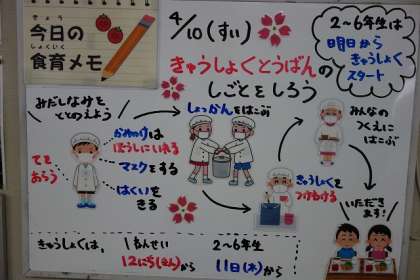 きょう
今日の
しょくいく
食育メモ
4/10(すい)
きゅうしょくとうばんの
しごとをしろう
2~6年生は
明日から
きゅうしょく
スタート
みだしなみを
ととのえよう
かみのけは
ぼうしにいれる
マスクをする
はくいを
きる
てを
あらう
しょっかんをはこぶ
きゅうしょくを
つけわける
みんなの
つくえに
はこぶ
いただき
ます!
きゅうしょくは、
1ねんせい
12にち(きん)から
2~6年生
11日(木)から